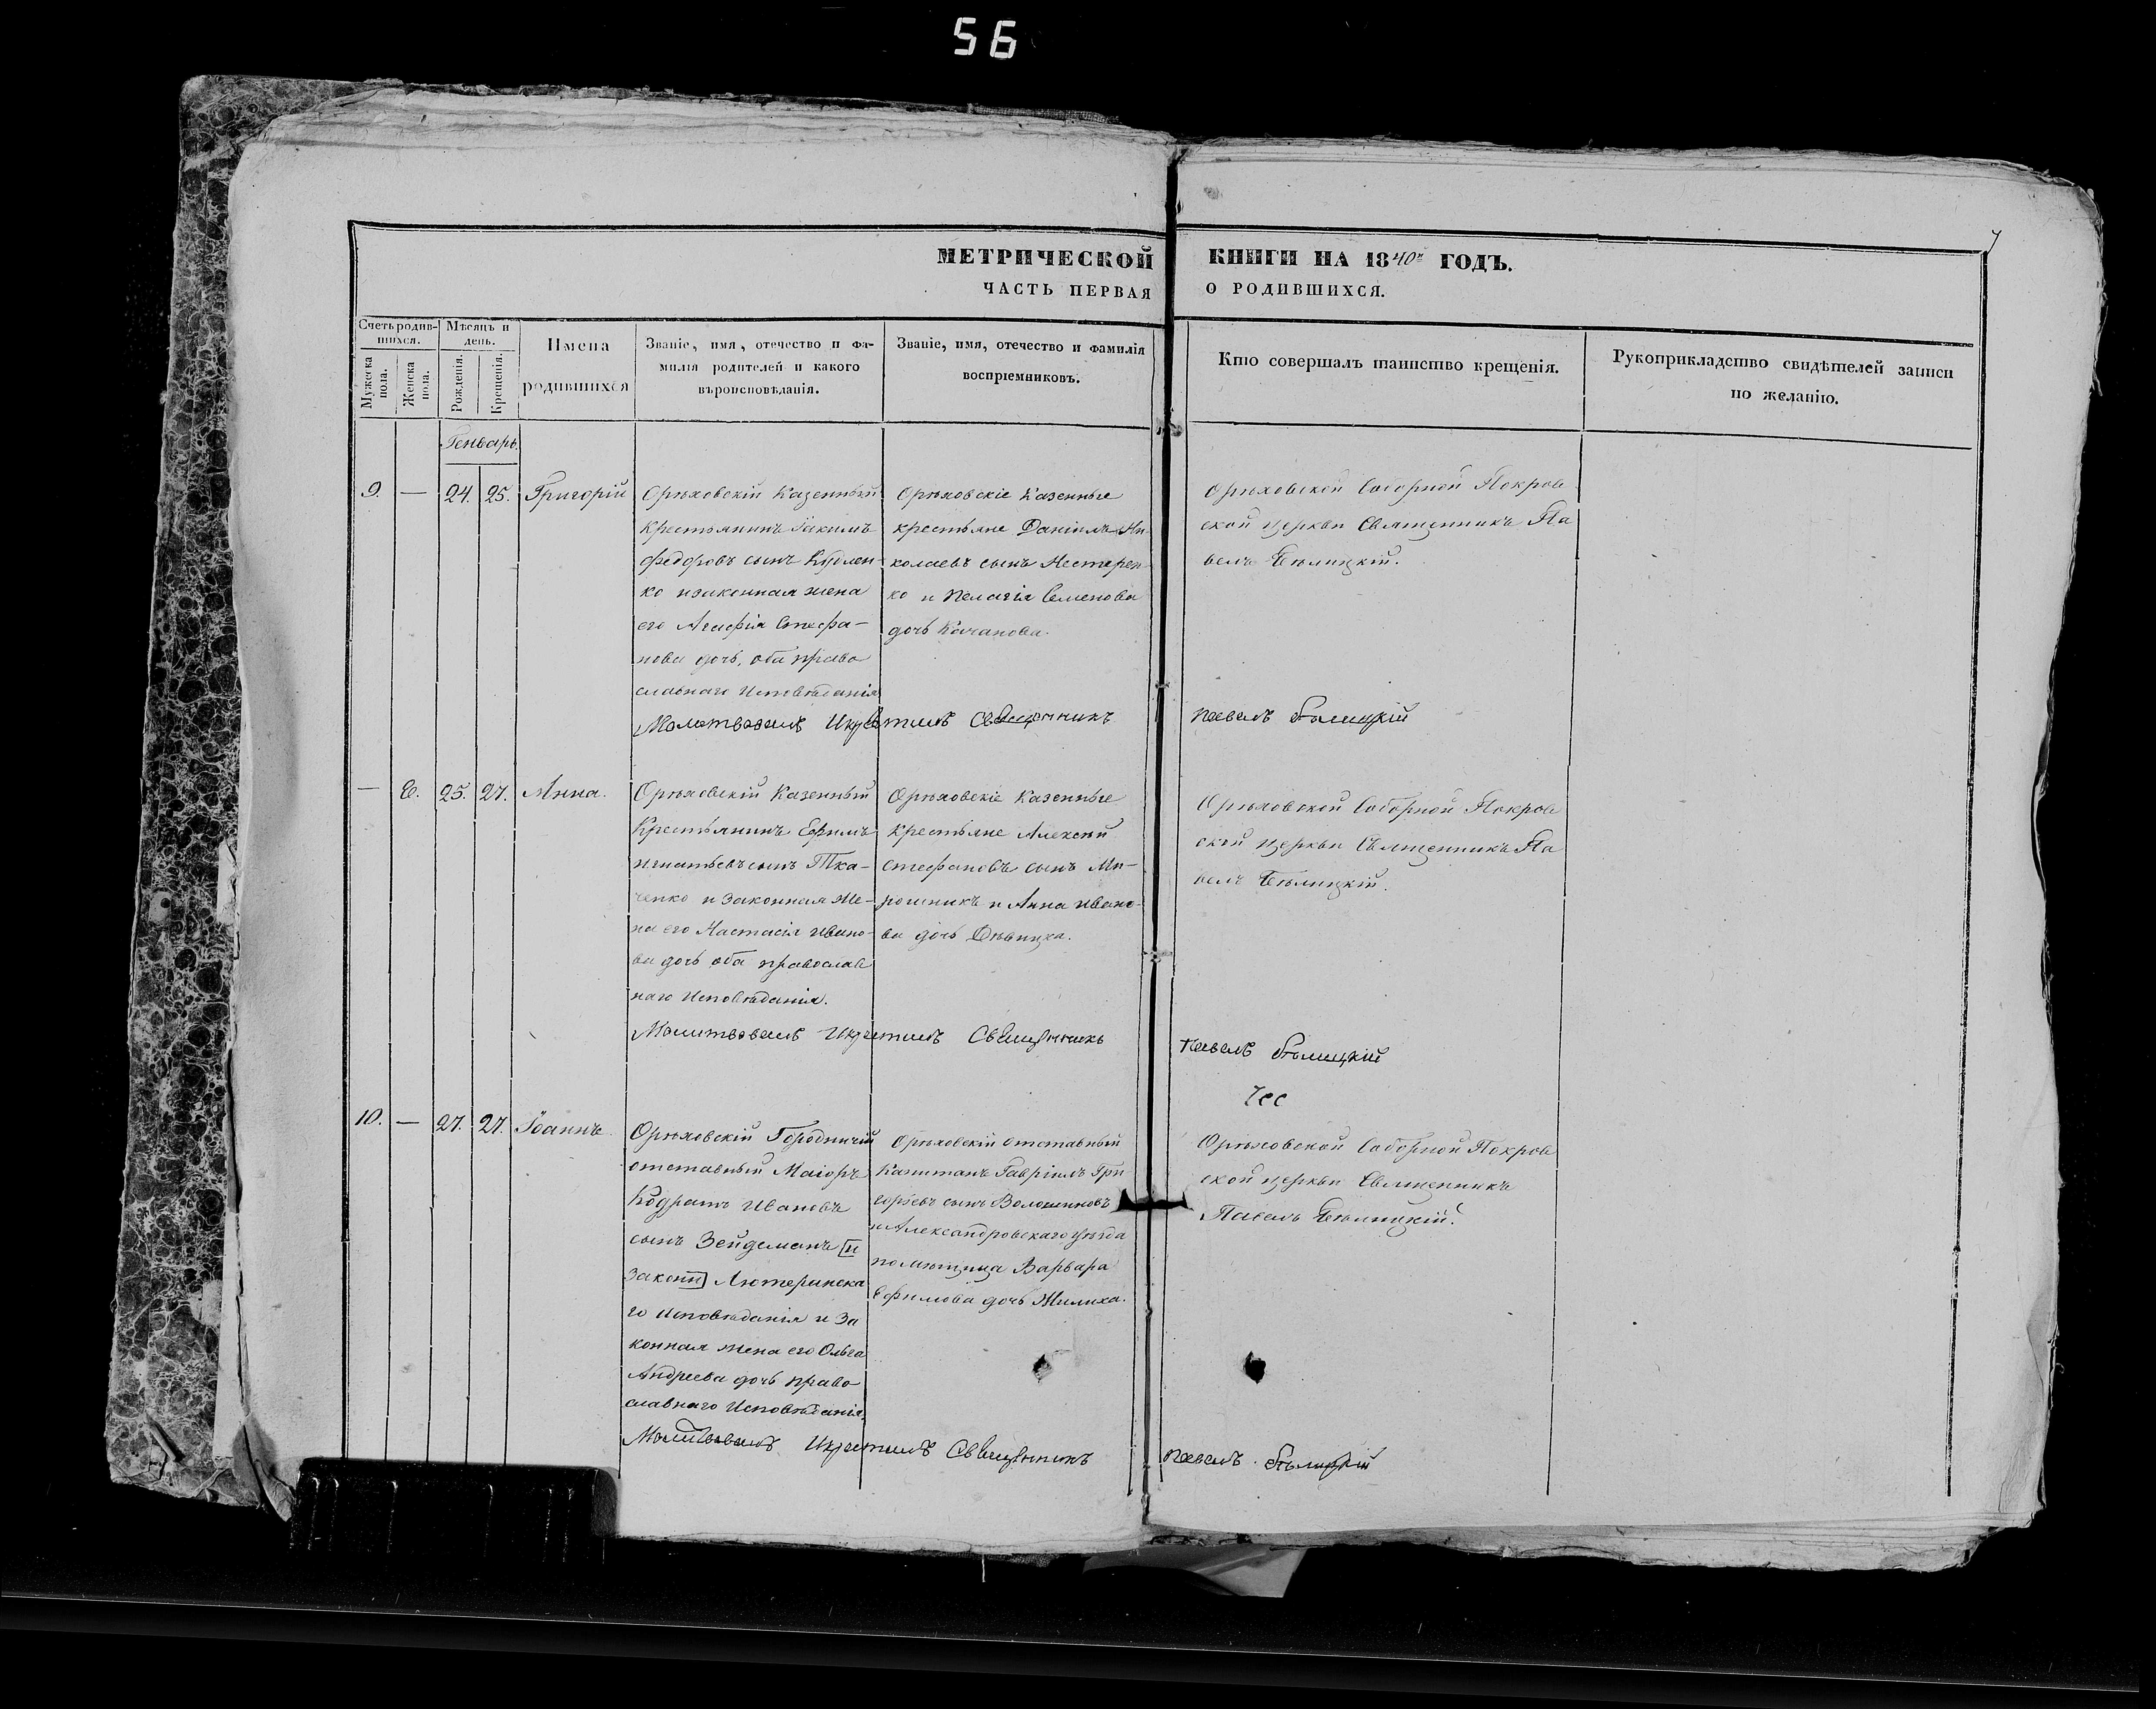 56
7
МЕТРИЧЕСКОЙ КНИГИ НА 1840й ГОДЪ.
ЧАСТЬ ПЕРВАЯ О РОДИВШИХСЯ.
Счетъ родив-
шихся.
Мужеска пола.
Женска пола.
Мѣсяцъ и
день.
Рожденія.
Крещенія.
Имена
родившихся
Званіе, имя, отечество и фа-
милія родителей и какого
вѣроисповѣданія.
Званіе, имя, отечество и фамилія
воспріемниковъ.
Кто совершалъ таинство крещенія.
Рукоприкладство свидѣтелей записи
по желанію.
Генварь.
9. — 24. 25. Григорій
Орѣховскій Казенный
Крестьянинъ Іакимъ
Федоровъ сынъ Кудлен-
ко и законная жена
его Агафія Стефа-
нова дочь, оба право
славнаго Исповѣданія
Орѣховскіе Казенные
крестьяне Даніилъ Ни
колаевъ сынъ Нестерен
ко и Пелагія Семенова
дочь Качанова.
Орѣховской Соборной Покров
ской церкви Священникъ Па
велъ Бѣлицкій.
Молитвовалъ Икрестилъ Священникъ Павелъ Бѣлицкій
— 6. 25. 27. Анна.
Орѣховскій Казенный
Крестьянинъ Ефимъ
Игнатьевъ сынъ Тка-
ченко и законная же-
на его Настасія Ивано-
ва дочь оба православ
наго Исповѣданія.
Орѣховскіе Казенные
Крестьяне Алексѣй
Стефановъ сынъ Ми-
рошникъ и Анна Ивано-
ва дочь
Орѣховской Соборной Покров
ской церкви Священникъ Па
велъ Бѣлицкій.
Молитвовалъ Икрестилъ Священникъ Павелъ Бѣлицкій
10. — 27. 27. Іоаннъ.
Орѣховскій Городничій
отставный Маіоръ
Кодратъ Ивановъ
сынъ Зейдеманъ [и
законн] Лютеринска
го Исповѣданія и За
конная жена его Ольга
Андреева дочь право
славнаго Исповѣданія.
Орѣховскій отставный
Капитанъ Гавріилъ Гри
горьевъ сынъ Волошиновъ
и Александровскаго уѣзда
помѣщица Варвара
Ефимова дочь Жилиха.
Орѣховской Соборной Покров
ской церкви Священникъ
Павелъ Бѣлицкій.
Молитвовалъ Икрестилъ Священникъ Павелъ Бѣлицкій